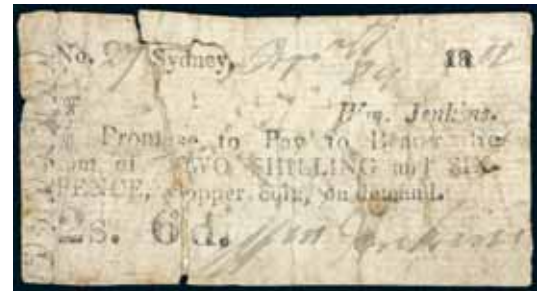 No. 27 Sydney, 18
Wm. Jenkins.
Promise to Pay to Bearer the
Sum of TWO SHILLING and SIX-
PENCE, Copper coin, on demand.
2s. 6d. Wm Jenkins